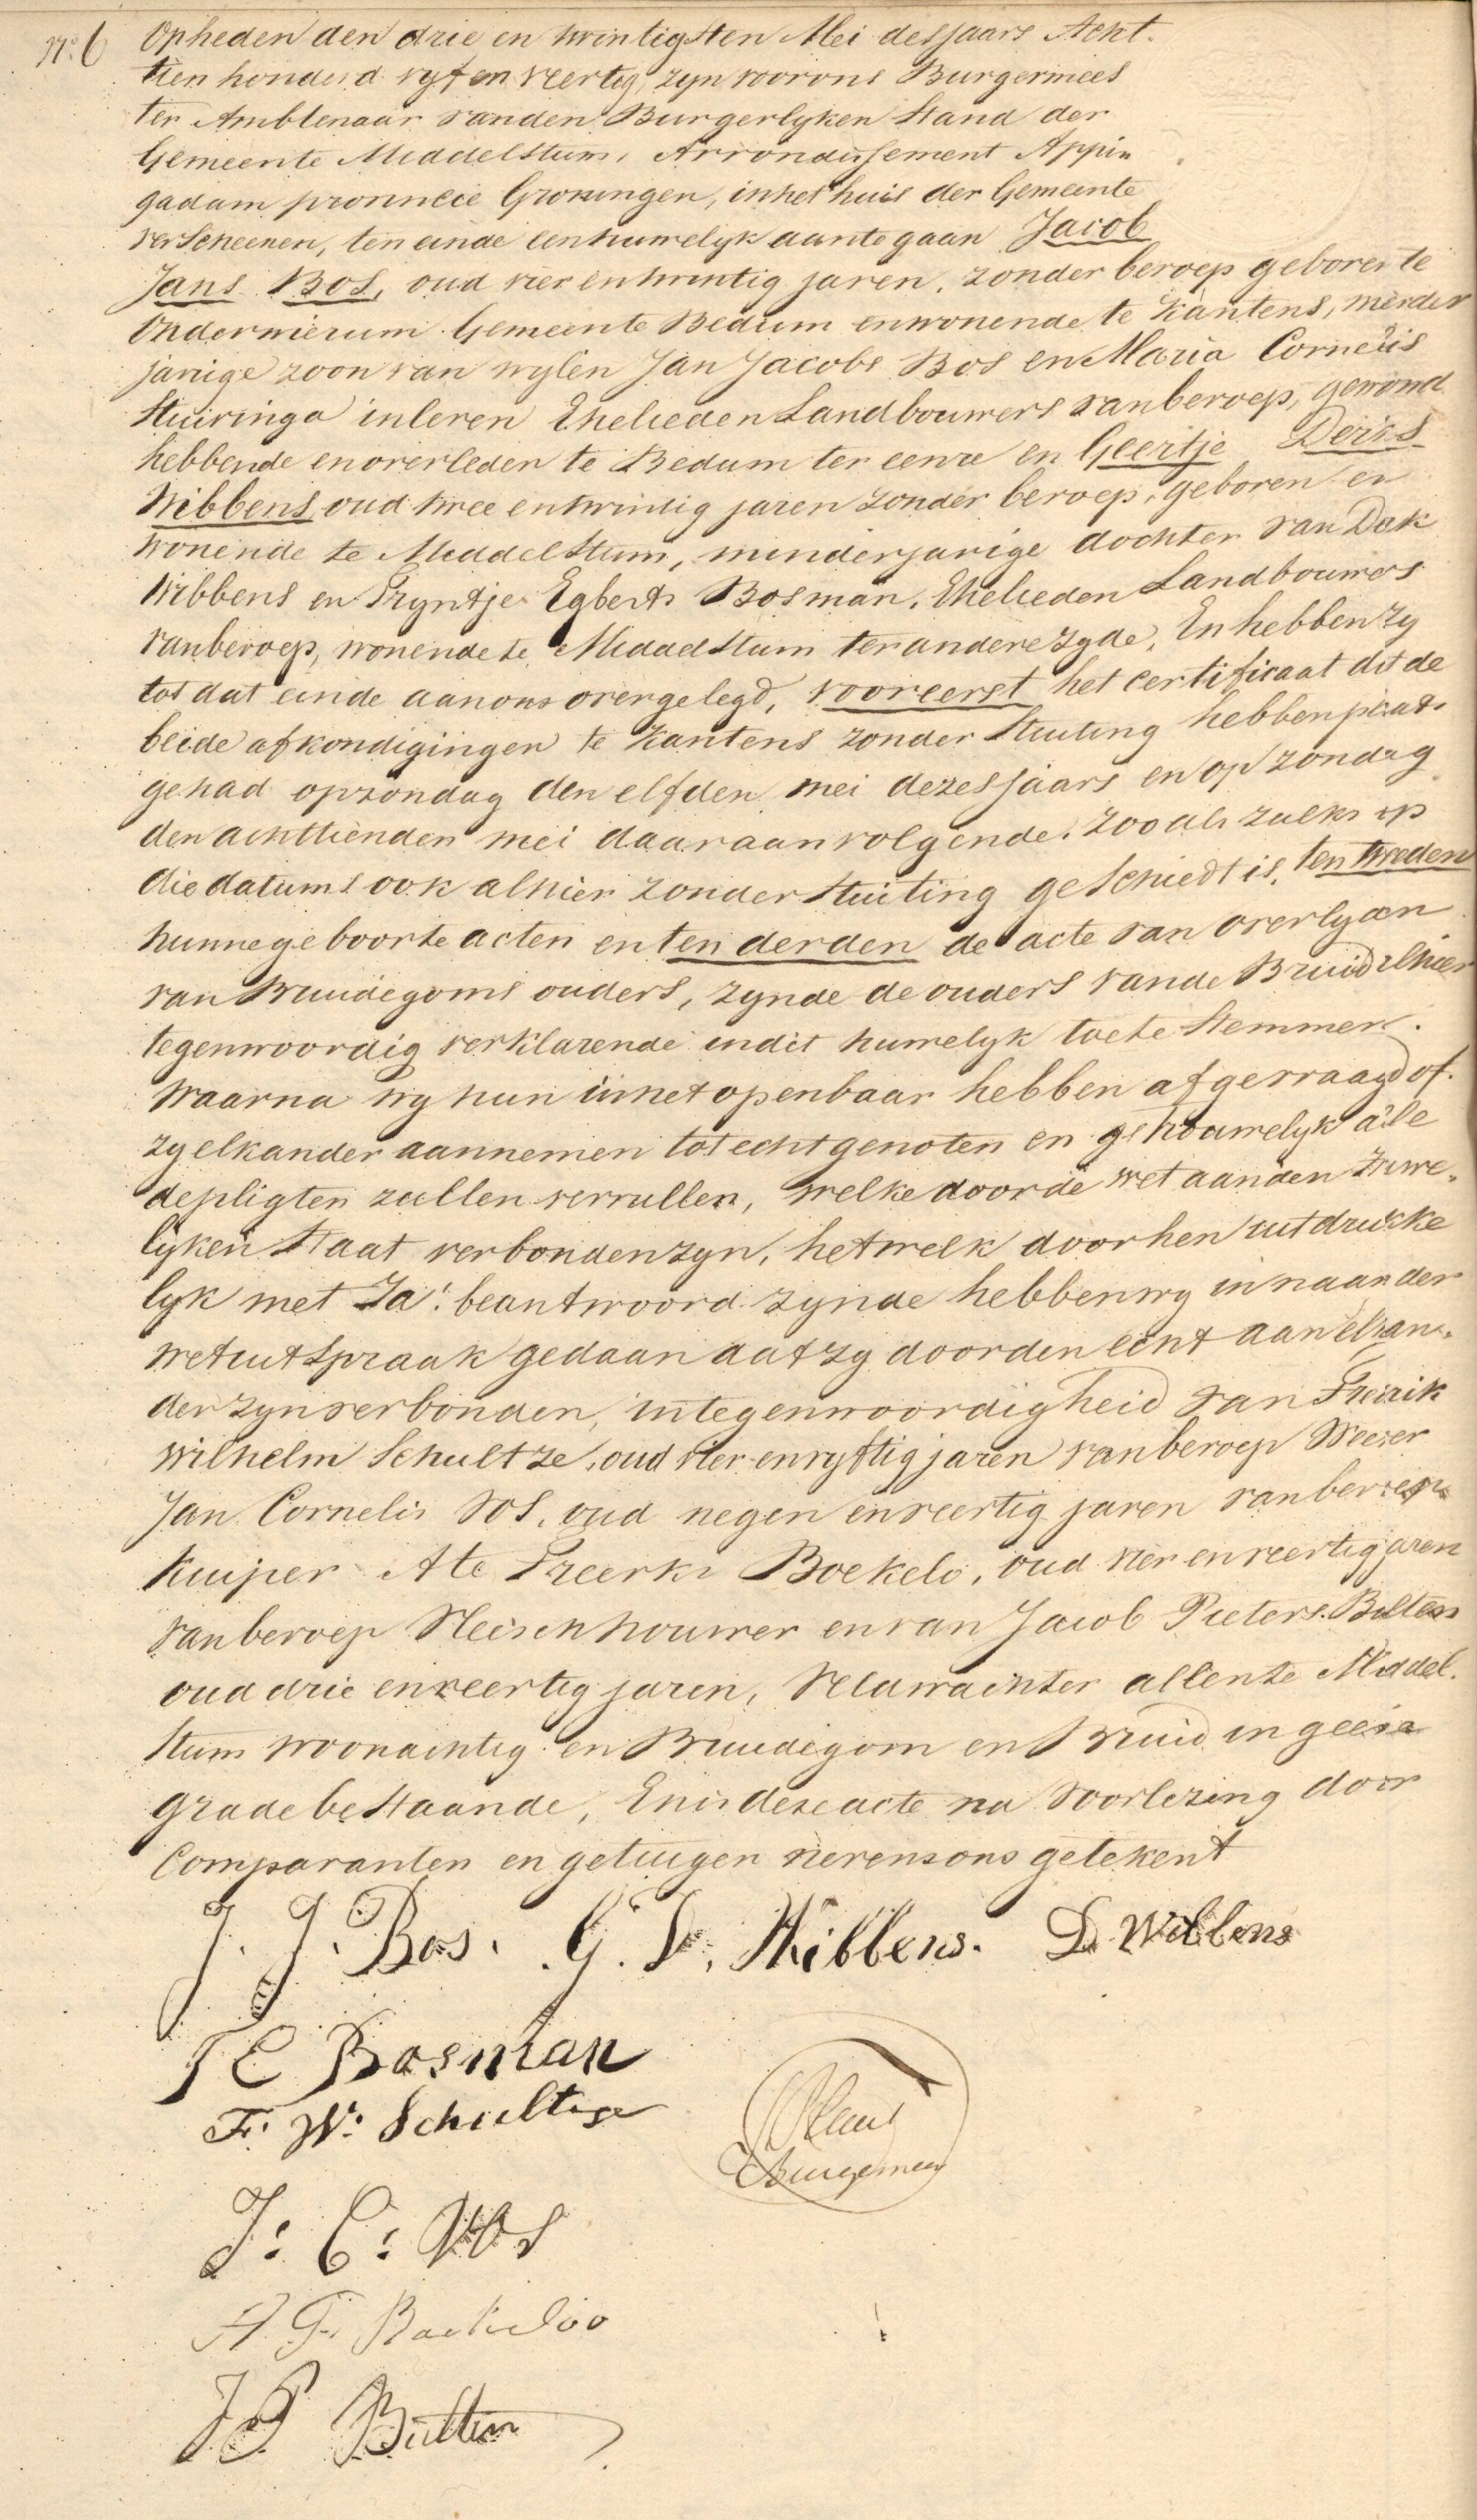 N.º 6 Op heden den drie en twintigsten Mei des jaars Acht-
tien honderd vyf en veertig, zyn voor ons Burgermees
ter Ambtenaar van den Burgerlyken Stand der
Gemeente Middelstum, Arrondissement Appin
gadam provincie Groningen, in het huis der Gemeente
verscheenen, ten einde een huwelyk aan te gaan Jacob
Jans Bos, oud vier en twintig jaren, zonder beroep geboren te
Onderwierum Gemeente Bedum en wonende te Kantens, meerder
jarige zoon van wylen Jan Jacobs Bos en Maria Cornelis
Stuiringa in leven Ehelieden Landbouwers van beroep, gewoond
hebbende en overleden te Bedum ter eenre en Geertje Derks
Wibbens oud twee en twintig jaren zonder beroep, geboren en
wonende te Middelstum, minderjarige dochter van Derk
Wibbens en Tryntje Egberts Bosman, Ehelieden Landbouwers
van beroep, wonende te Middelstum ter andere zyde, En hebben zy
tot dat einde aan ons overgelegd, vooreerst het certificaat dat de
beide afkondigingen te Kantens zonder Stuiting hebben plaats
gehad op zondag den elfden mei dezes jaars en op zondag
den achttienden mei daaraanvolgende, zoo als zulks op
die datums ook alhier zonder Stuiting geschiedt is, ten tweden
hunne geboorte acten en ten derden de acte van overlyden
van Bruidegoms ouders, zynde de ouders van de Bruid alhier
tegenwoordig verklarende in dit huwelyk toe te Stemmen.
Waarna wy hun in het openbaar hebben afgevraagd of
zy elkander aannemen tot echtgenoten en getrouwelyk alle
de pligten zullen vervullen, welke door de wet aan den huwe-
lyken Staat verbonden zyn, hetwelk door hen uitdrukke
lyk met Ja! beantwoord zynde hebben wy in naam der
wet uitspraak gedaan dat zy door den echt aan elkan-
der zyn verbonden, in tegenwoordigheid van Fredrik
Wilhelm Schultze, oud vier en vyftig jaren van beroep Wever
Jan Cornelis Vos, oud negen en veertig jaren van beroep
Kuiper Ate Freerks Boekelo, oud vier en veertig jaren
van beroep Vleischhouwer en van Jacob Pieters Bulten
oud drie en veertig jaren, Veldwachter allen te Middel-
stum woonachtig en Bruidegom en Bruid in geene
grade bestaande, En is deze acte na Voorlezing door
Comparanten en getuigen nevens ons getekent
J. J. Bos. G. D. Wibbens. D Wibbens
T E Bosman
F. W. Schultze
Burgemeester
J: C: Vos
A. F. Boekeloo
J P Bulten